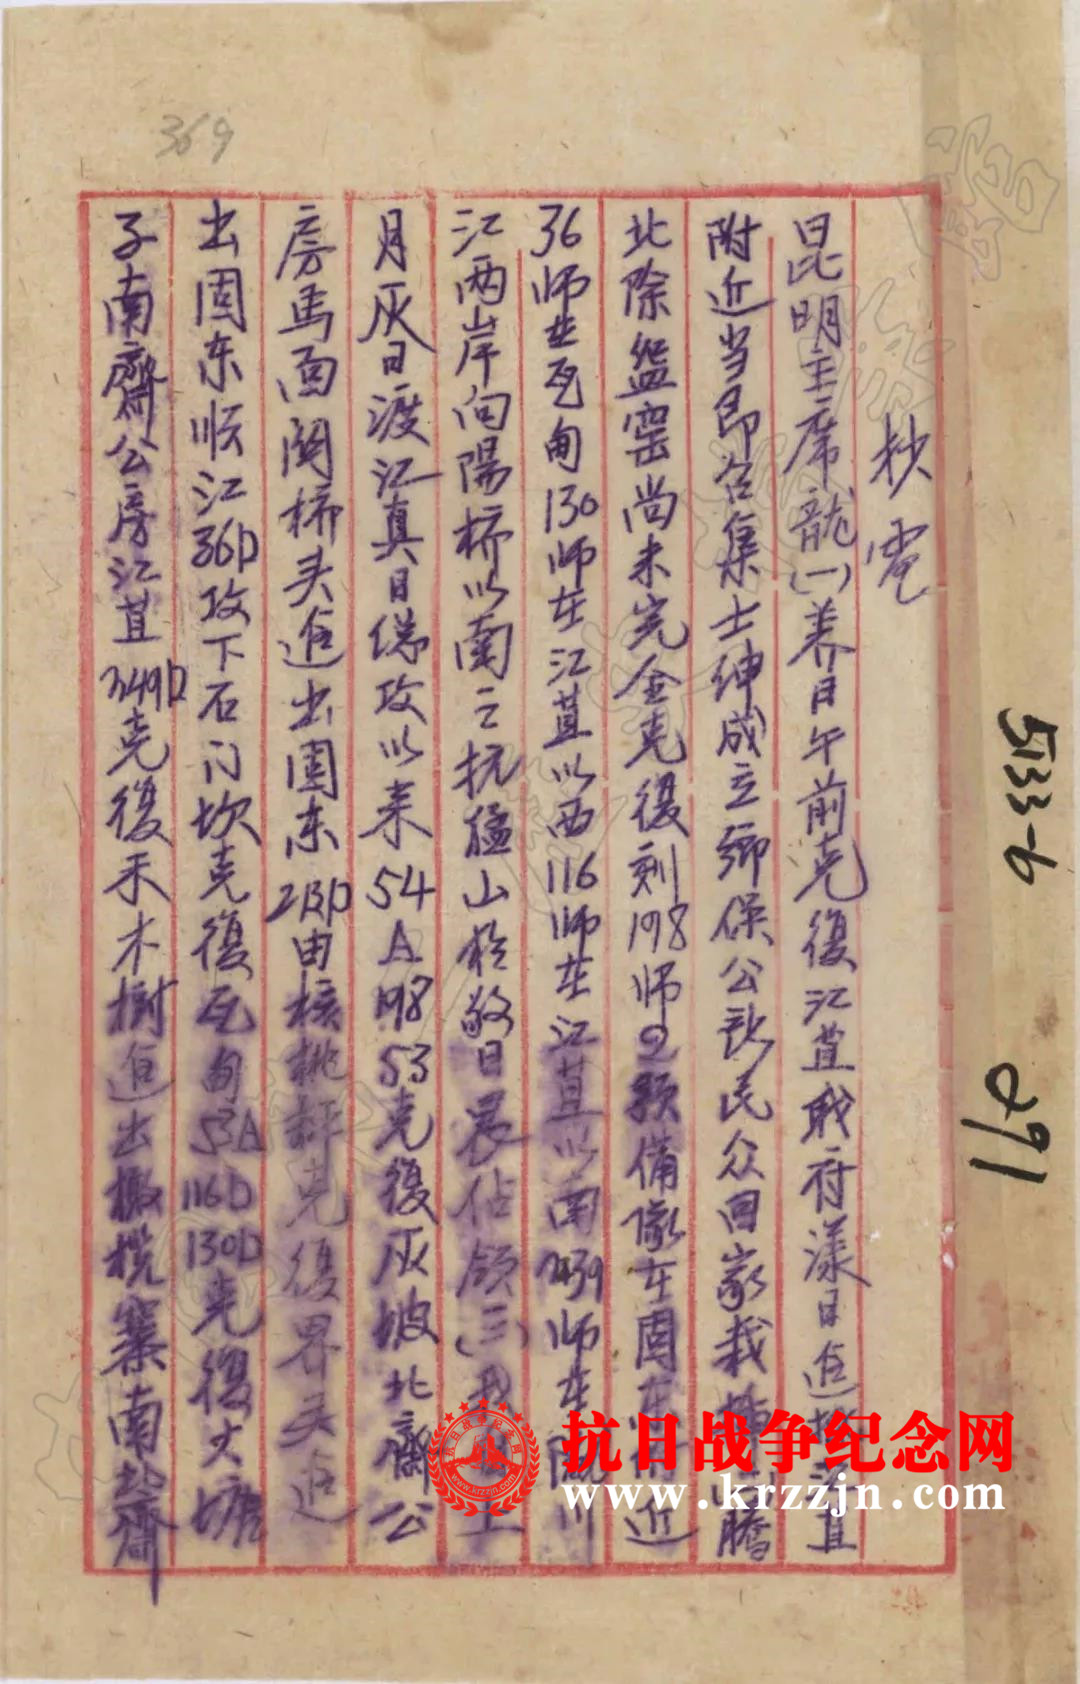 369
抄電
昆明主席龍(一)养日午前克復江苴職府漾日迫抵江苴
附近当即召集士绅成立鄉保公所民众回家栽插
騰
北除盤窑尚未完全克復刻198师
预備隊在固东附近
36师在瓦甸130师在江苴以西116师在江苴以南
师在
江两岸向陽桥以南之抗猛山於敬日晨佔领(三)
月灰日渡江真日偽攻以来54A198 53克復灰坡北齋公
房马面関桥头迫出固东2BD由核桃坪克復界头迫
出固东顺江36D攻下石门坎克復瓦甸53A116D130D克復大塘
子南齋公房江苴349D克復禾木樹迫出橄榄寨南
齋
533-6
291
抗日战争纪念网
www.krzzjn.com